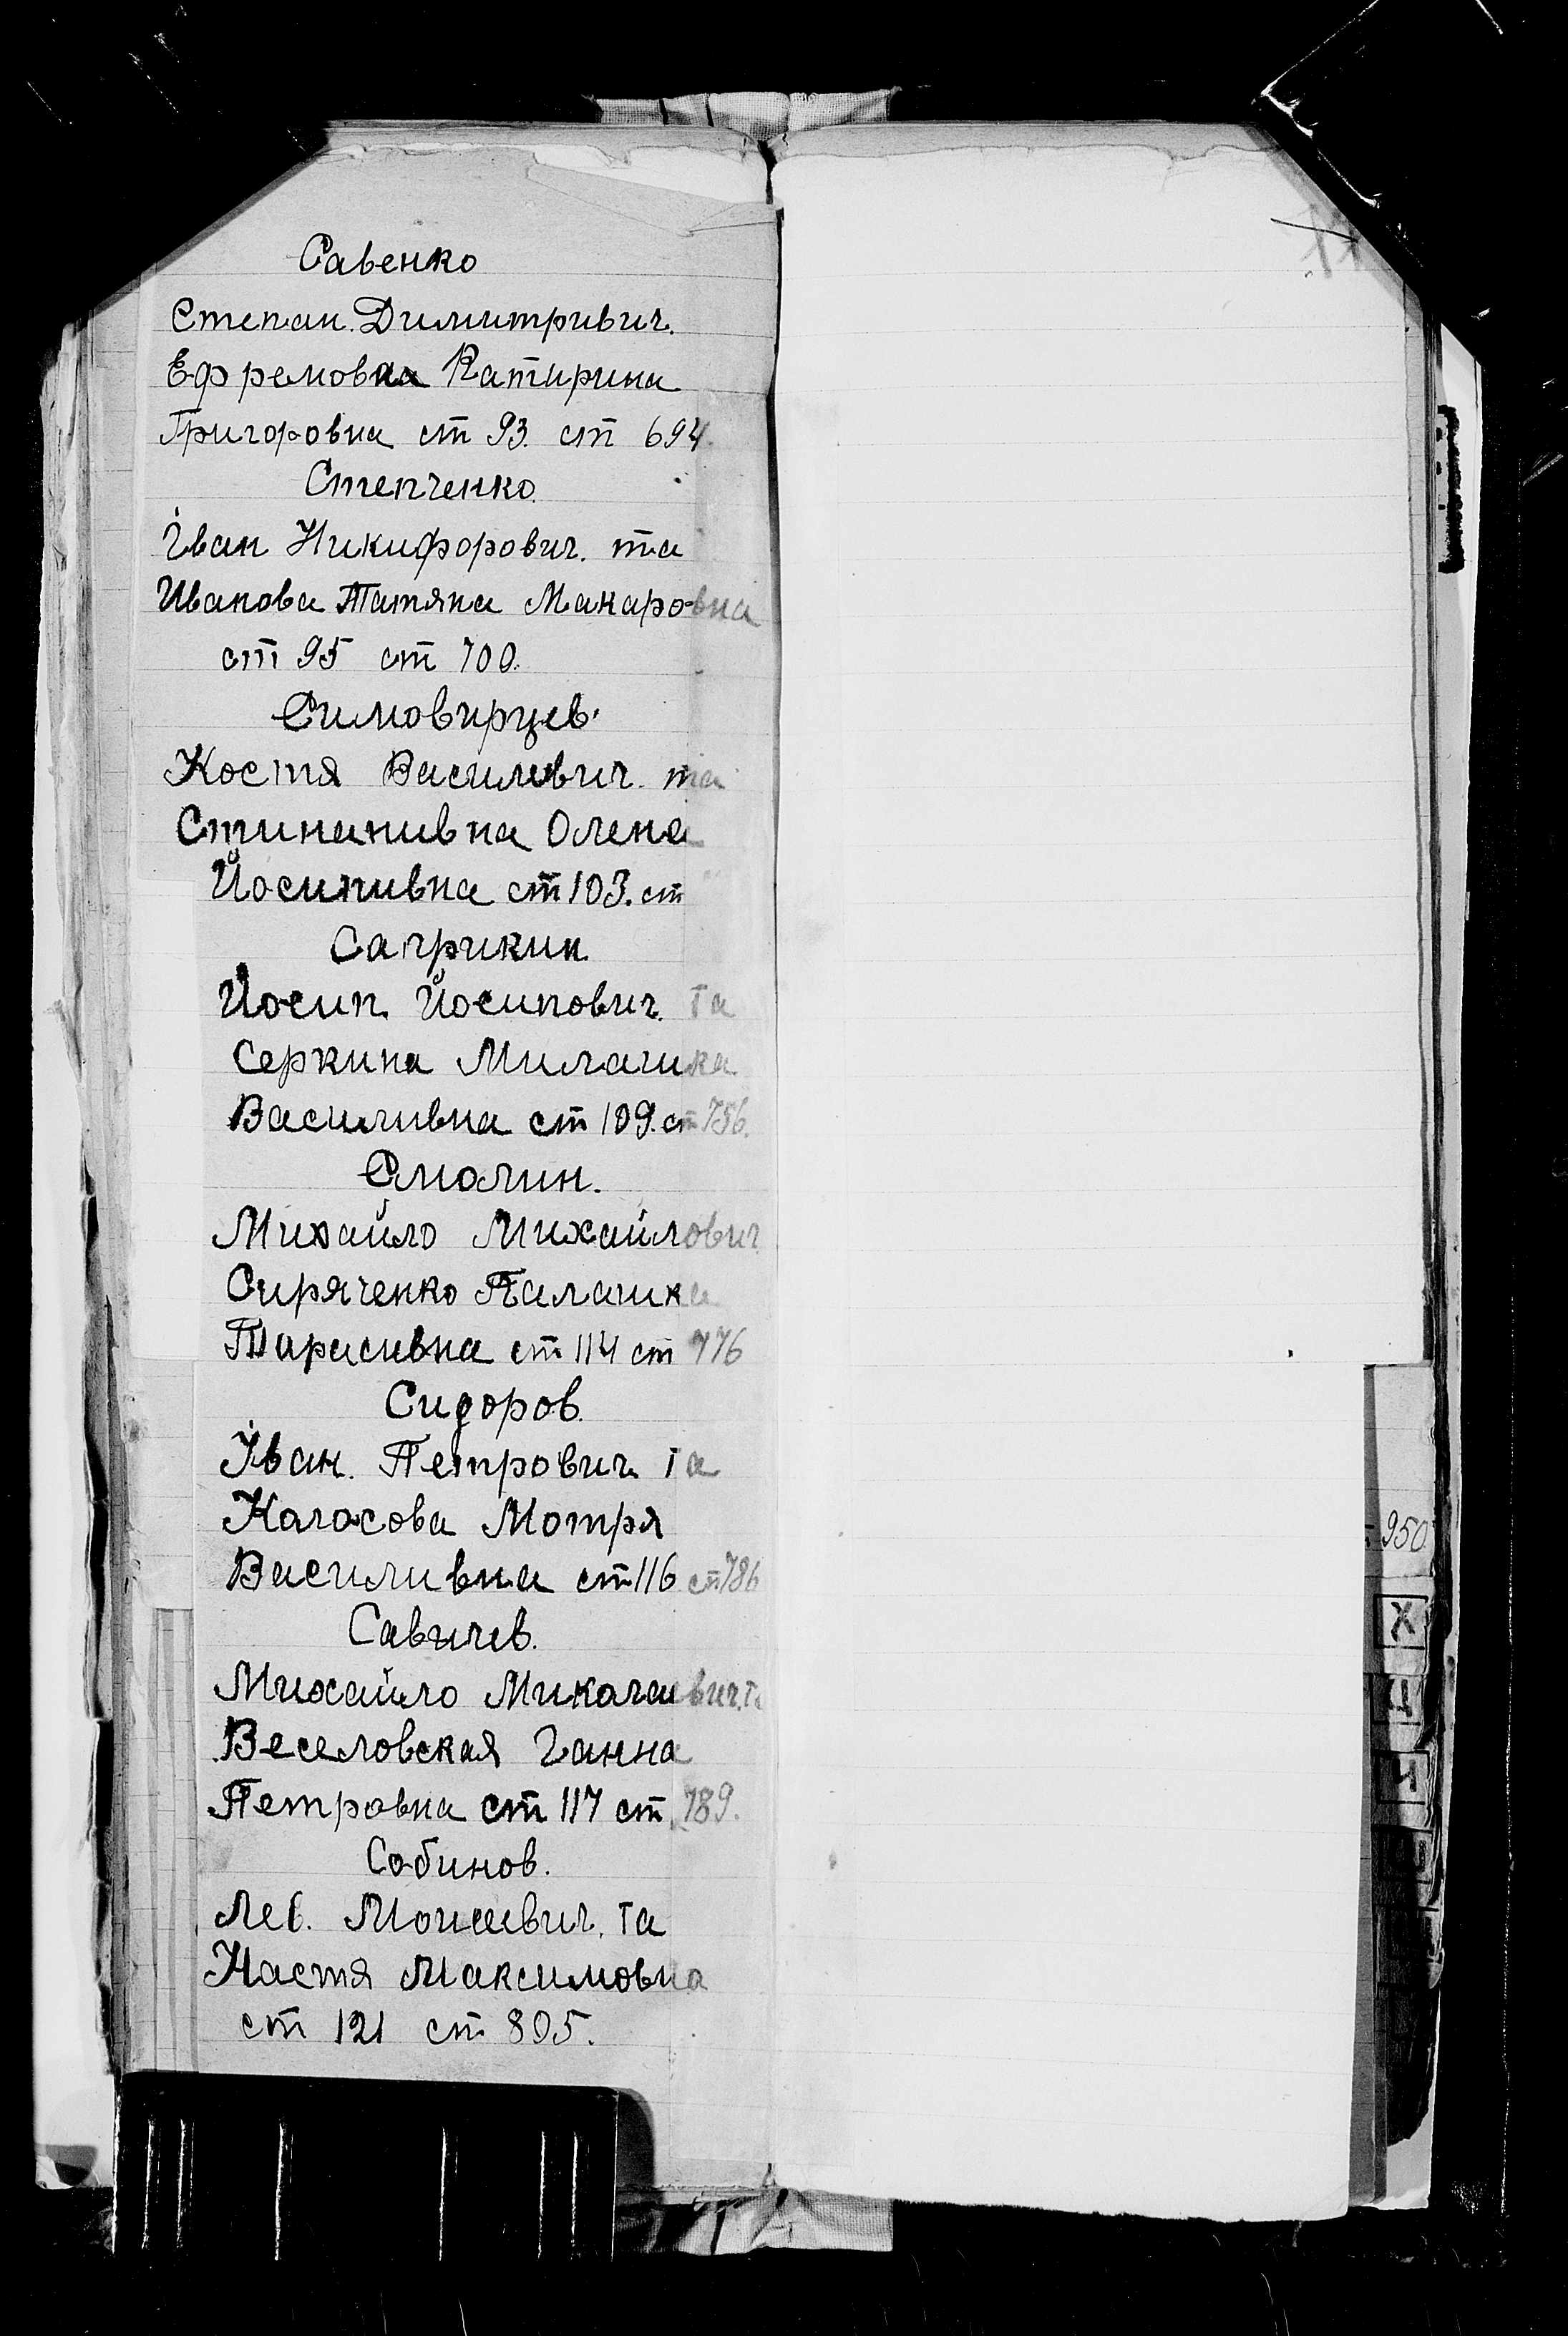 Савенко
Степан. Димитривич.
Ефремовна Катирина
Григоровна ст 93. ст 694.
Степченко.
Іван Никифорович. та
Иванова Татяна Макаровна
ст 95 ст 700.
Симовирцев.
Костя Василевич. та
Йосипивна ст 103. ст
Сапрікин.
Йосип. Йосипович. та
Серкина Милашка
Василивна ст 109. ст 756.
Смолин.
Михайло Михайлович
Сиряченко Палашка
Тарасивна ст 114 ст 776
Сидоров.
Іван. Петрович та
Каласова Мотря
Василивна ст 116 ст 786
Савичев.
Михайло Миколаевич. та
Веселовская Ганна
Петровна ст 117 ст 789.
Собинов.
Лев. Моисевич. та
Настя Максимовна
ст 121 ст 805.
950.
Х
Ц